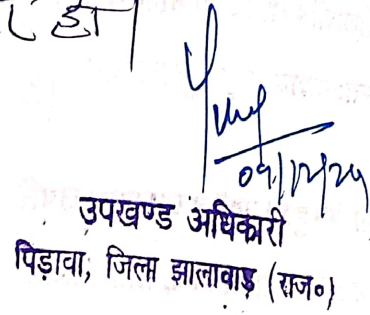 हो।
09/12/24
उपखण्ड अधिकारी
पिड़ावा, जिला झालावाड़ (राज०)